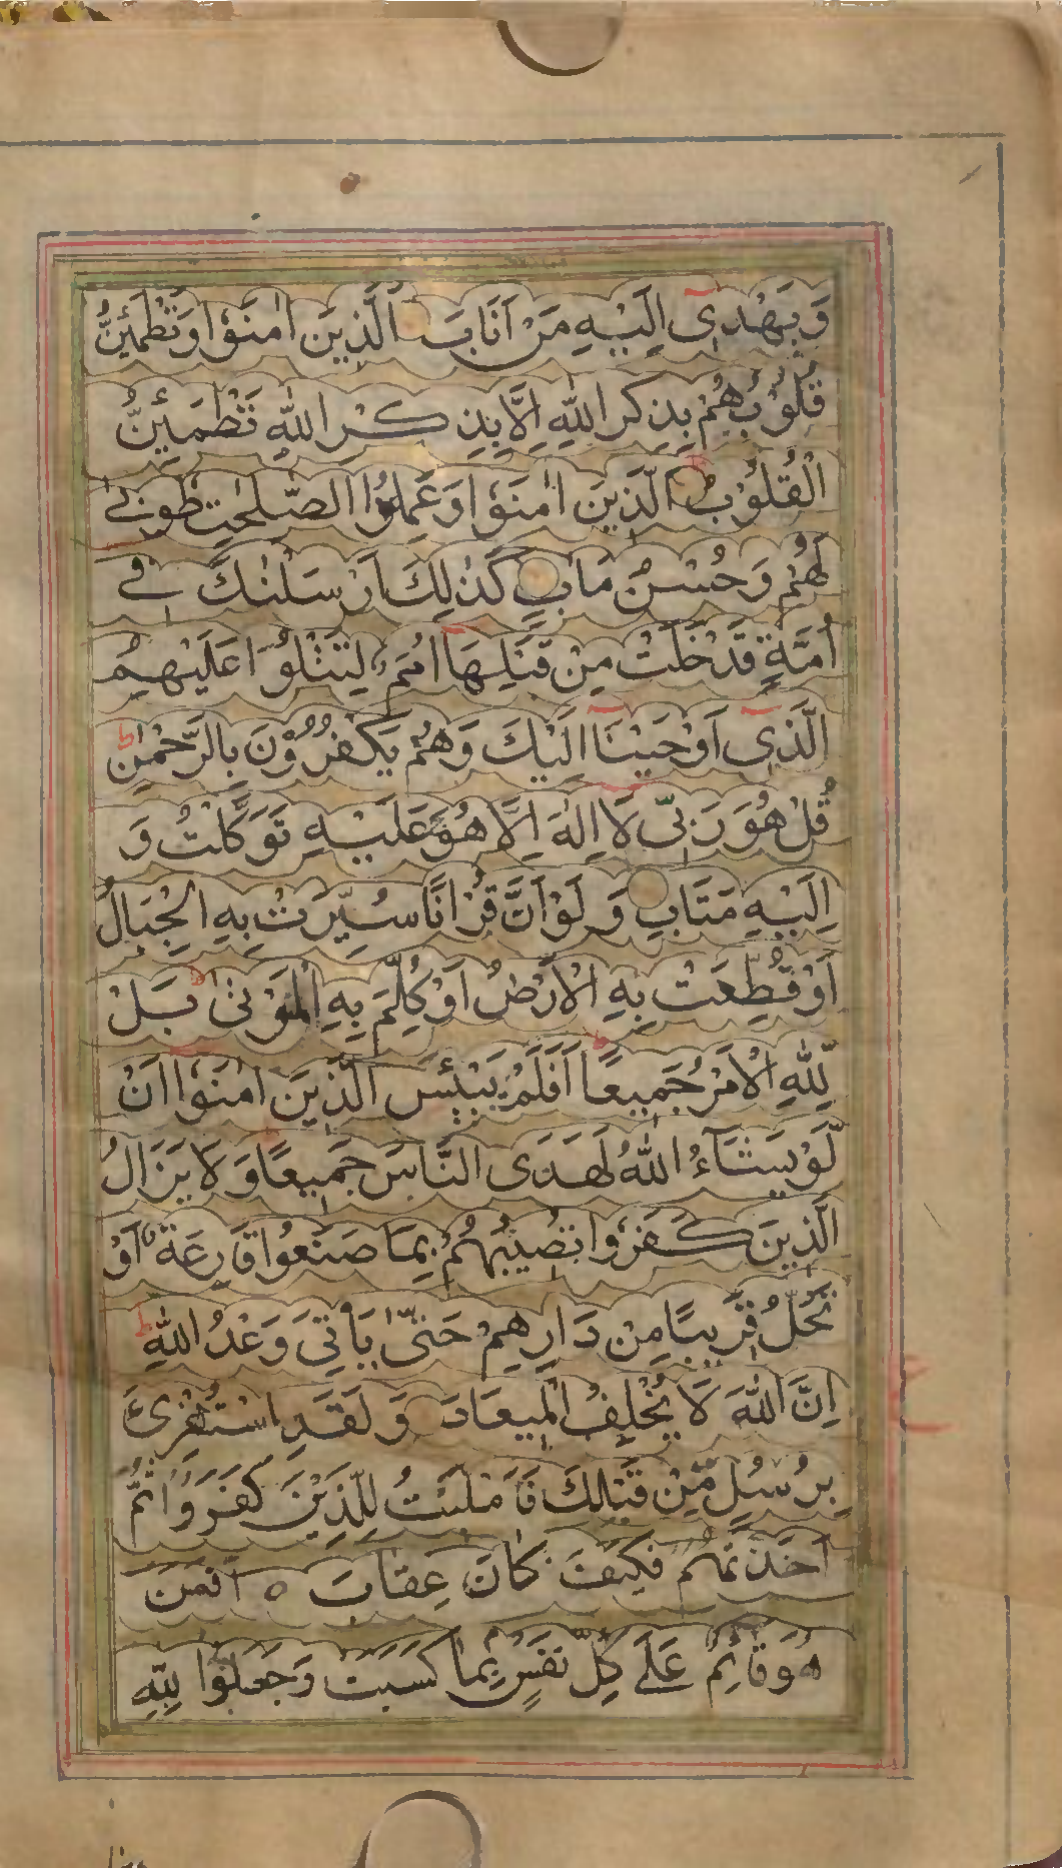 وَيَهْدِىٓ اِلَيْهِ مَنْ اَنَابَ اَلَّذِيْنَ اٰمَنُوْا وَتَطْمَئِنُّ
قُلُوْبُهُمْ بِذِكْرِ اللّٰهِ اَلَا بِذِكْرِ اللّٰهِ تَطْمَئِنُّ
الْقُلُوْبُ اَلَّذِيْنَ اٰمَنُوْا وَعَمِلُوا الصّٰلِحٰتِ طُوْبٰى
لَهُمْ وَحُسْنُ مَاٰبٍ كَذٰلِكَ اَرْسَلْنٰكَ فِىْ
اُمَّةٍ قَدْ خَلَتْ مِنْ قَبْلِهَآ اُمَمٌ لِتَتْلُوَا۟ عَلَيْهِمُ
الَّذِىٓ اَوْحَيْنَآ اِلَيْكَ وَهُمْ يَكْفُرُوْنَ بِالرَّحْمٰنِ ط
قُلْ هُوَ رَبِّىْ لَآ اِلٰهَ اِلَّا هُوَ عَلَيْهِ تَوَكَّلْتُ وَ
اِلَيْهِ مَتَابِ وَلَوْ اَنَّ قُرْاٰنًا سُيِّرَتْ بِهِ الْجِبَالُ
اَوْ قُطِّعَتْ بِهِ الْاَرْضُ اَوْ كُلِّمَ بِهِ الْمَوْتٰى بَلْ
لِّلّٰهِ الْاَمْرُ جَمِيْعًا اَفَلَمْ يَيْئَسِ الَّذِيْنَ اٰمَنُوْٓا اَنْ
لَّوْ يَشَآءُ اللّٰهُ لَهَدَى النَّاسَ جَمِيْعًا وَلَا يَزَالُ
الَّذِيْنَ كَفَرُوْا تُصِيْبُهُمْ بِمَا صَنَعُوْا قَارِعَةٌ اَوْ
تَحُلُّ قَرِيْبًا مِنْ دَارِهِمْ حَتّٰى يَاْتِىَ وَعْدُ اللّٰهِ ط
اِنَّ اللّٰهَ لَا يُخْلِفُ الْمِيْعَادَ وَلَقَدِ اسْتُهْزِئَ
بِرُسُلٍ مِّنْ قَبْلِكَ فَاَمْلَيْتُ لِلَّذِيْنَ كَفَرُوْا ثُمَّ
اَخَذْتُهُمْ فَكَيْفَ كَانَ عِقَابِ ٥ اَفَمَنْ
هُوَ قَائِمٌ عَلٰى كُلِّ نَفْسٍ بِمَا كَسَبَتْ وَجَعَلُوْا لِلّٰهِ